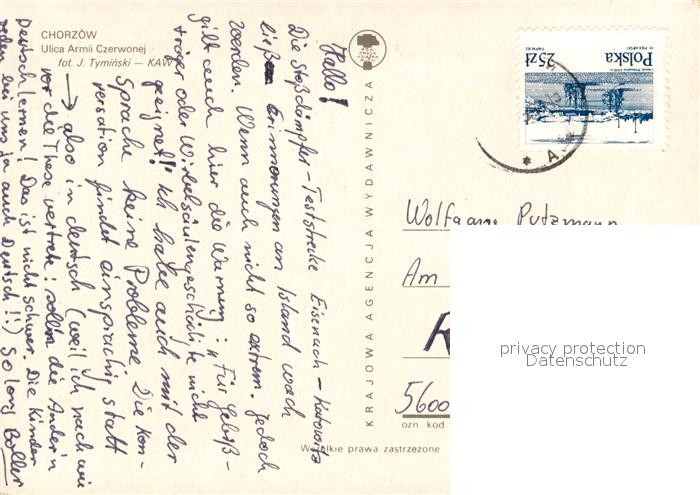 CHORZÓW
Ulica Armii Czerwonej
fot. J. Tymiński — KAW
Hallo!
Die Stoßdämpfer-Teststrecke Eisenach – Katowitz
ließen Erinnerungen an Island wach
werden. Wenn auch nicht so extrem. Jedoch
gilt auch hier die Warnung: „Für Gebiß-
träger oder Wirbelsäulengeschädigte nicht
geeignet!" Ich habe auch mit der
Sprache keine Probleme. Die Kon-
versation findet einsprachig statt
→ also in deutsch (weil ich nach wie
vor die These vertrete: solln die Ander'n
Deutsch lernen! Das ist nicht schwer. Die Kinder
reden bei uns ja auch Deutsch!!) So long
KRAJOWA AGENCJA WYDAWNICZA
25 ZŁ
Polska
A
Wolfgang Putzmann
Am
5600
ozn kod
Wszelkie prawa zastrzeżone
privacy protection
Datenschutz